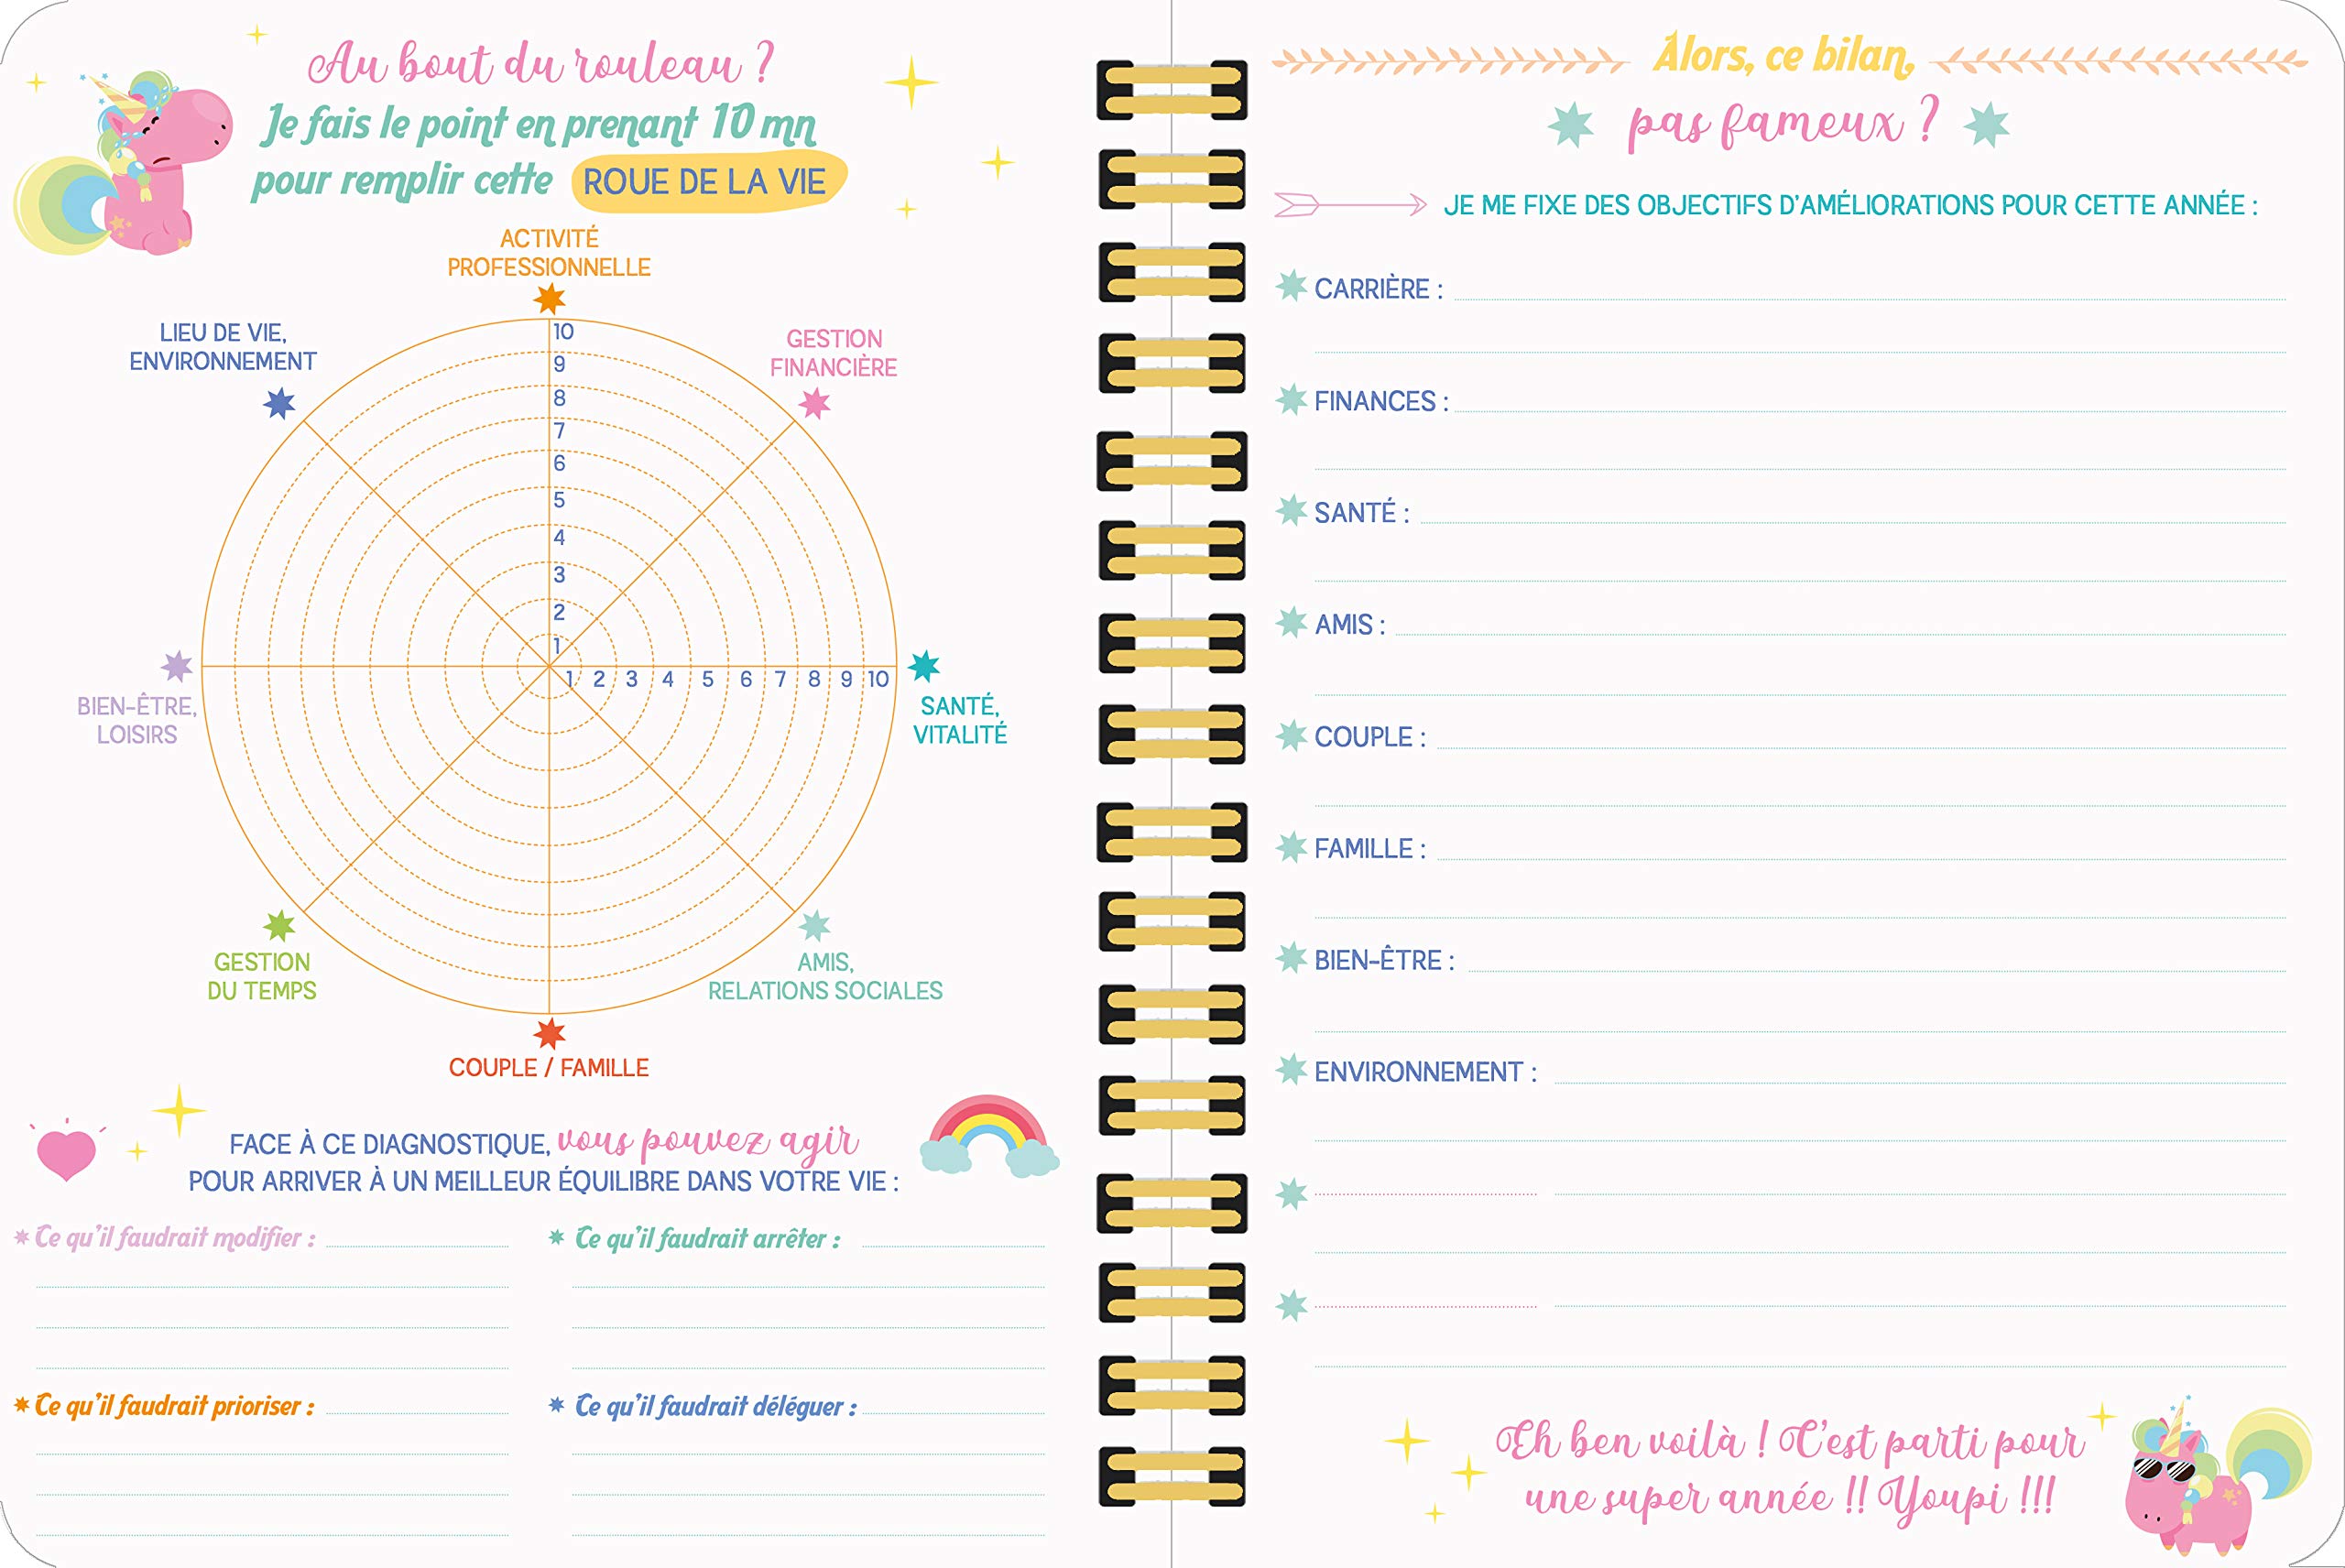 Au bout du rouleau ?
Je fais le point en prenant 10 mn
pour remplir cette ROUE DE LA VIE
ACTIVITÉ
PROFESSIONNELLE
LIEU DE VIE,
ENVIRONNEMENT
GESTION
FINANCIÈRE
10
9
8
7
6
5
4
3
2
1
1 2 3 4 5 6 7 8 9 10
BIEN-ÊTRE,
LOISIRS
SANTÉ,
VITALITÉ
GESTION
DU TEMPS
AMIS,
RELATIONS SOCIALES
COUPLE / FAMILLE
FACE À CE DIAGNOSTIQUE, vous pouvez agir
POUR ARRIVER À UN MEILLEUR ÉQUILIBRE DANS VOTRE VIE :
Ce qu'il faudrait modifier :
Ce qu'il faudrait arrêter :
Ce qu'il faudrait prioriser :
Ce qu'il faudrait déléguer :
Alors, ce bilan,
pas fameux ?
JE ME FIXE DES OBJECTIFS D'AMÉLIORATIONS POUR CETTE ANNÉE :
CARRIÈRE :
FINANCES :
SANTÉ :
AMIS :
COUPLE :
FAMILLE :
BIEN-ÊTRE :
ENVIRONNEMENT :
Eh ben voilà ! C'est parti pour
une super année !! Youpi !!!